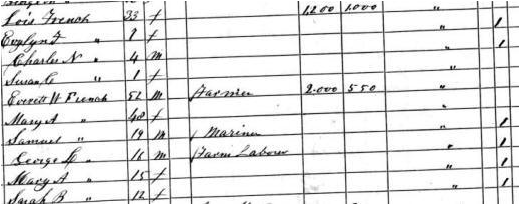 Lois French 33 f 1200 1.000 "
Evylyn F " 7 f " 1
Charles N " 4 m " 1
Susan C " 1 f "
Everett W French 52 m Farmer 2.000 550 "
Mary A " 48 f "
Samuel " 19 m Mariner " 1
George " 16 m Farm Labour " 1
Mary A " 15 f " 1
Sarah B " 12 f " 1